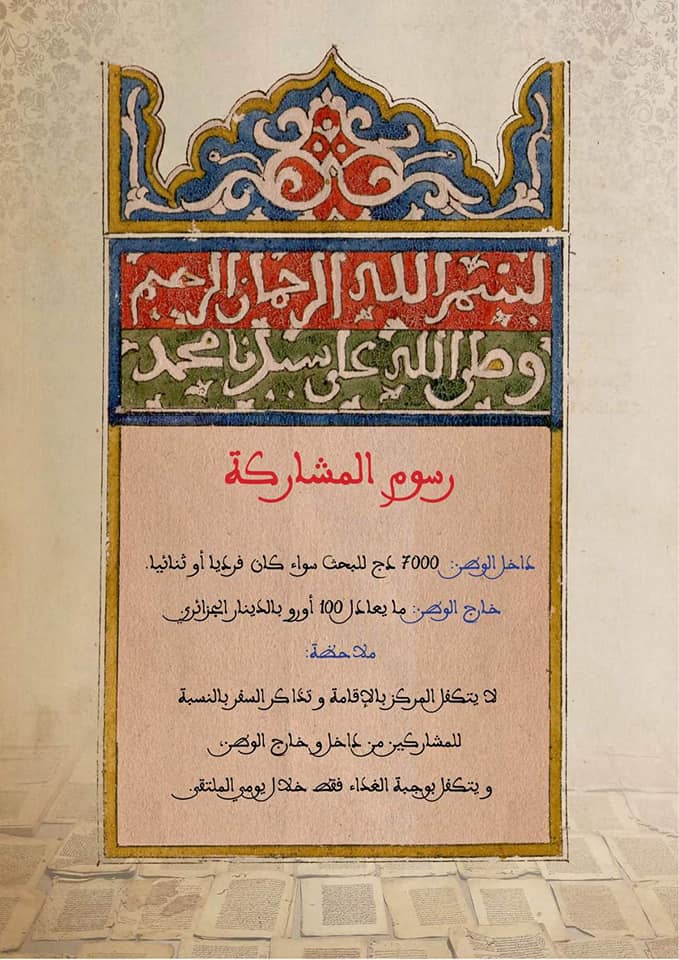 بسم الله الرحمان الرحيم
وصلى الله على سيدنا محمد
رسوم المشاركة
داخل الوطن: 7000 دج للبحث سواء كان فرديا أو ثنائيا.
خارج الوطن: ما يعادل 100 أورو بالدينار الجزائري
ملاحظة:
لا يتكفل المركز بالإقامة و تذاكر السفر بالنسبة
للمشاركين من داخل و خارج الوطن،
و يتكفل بوجبة الغداء فقط خلال يومي الملتقى.